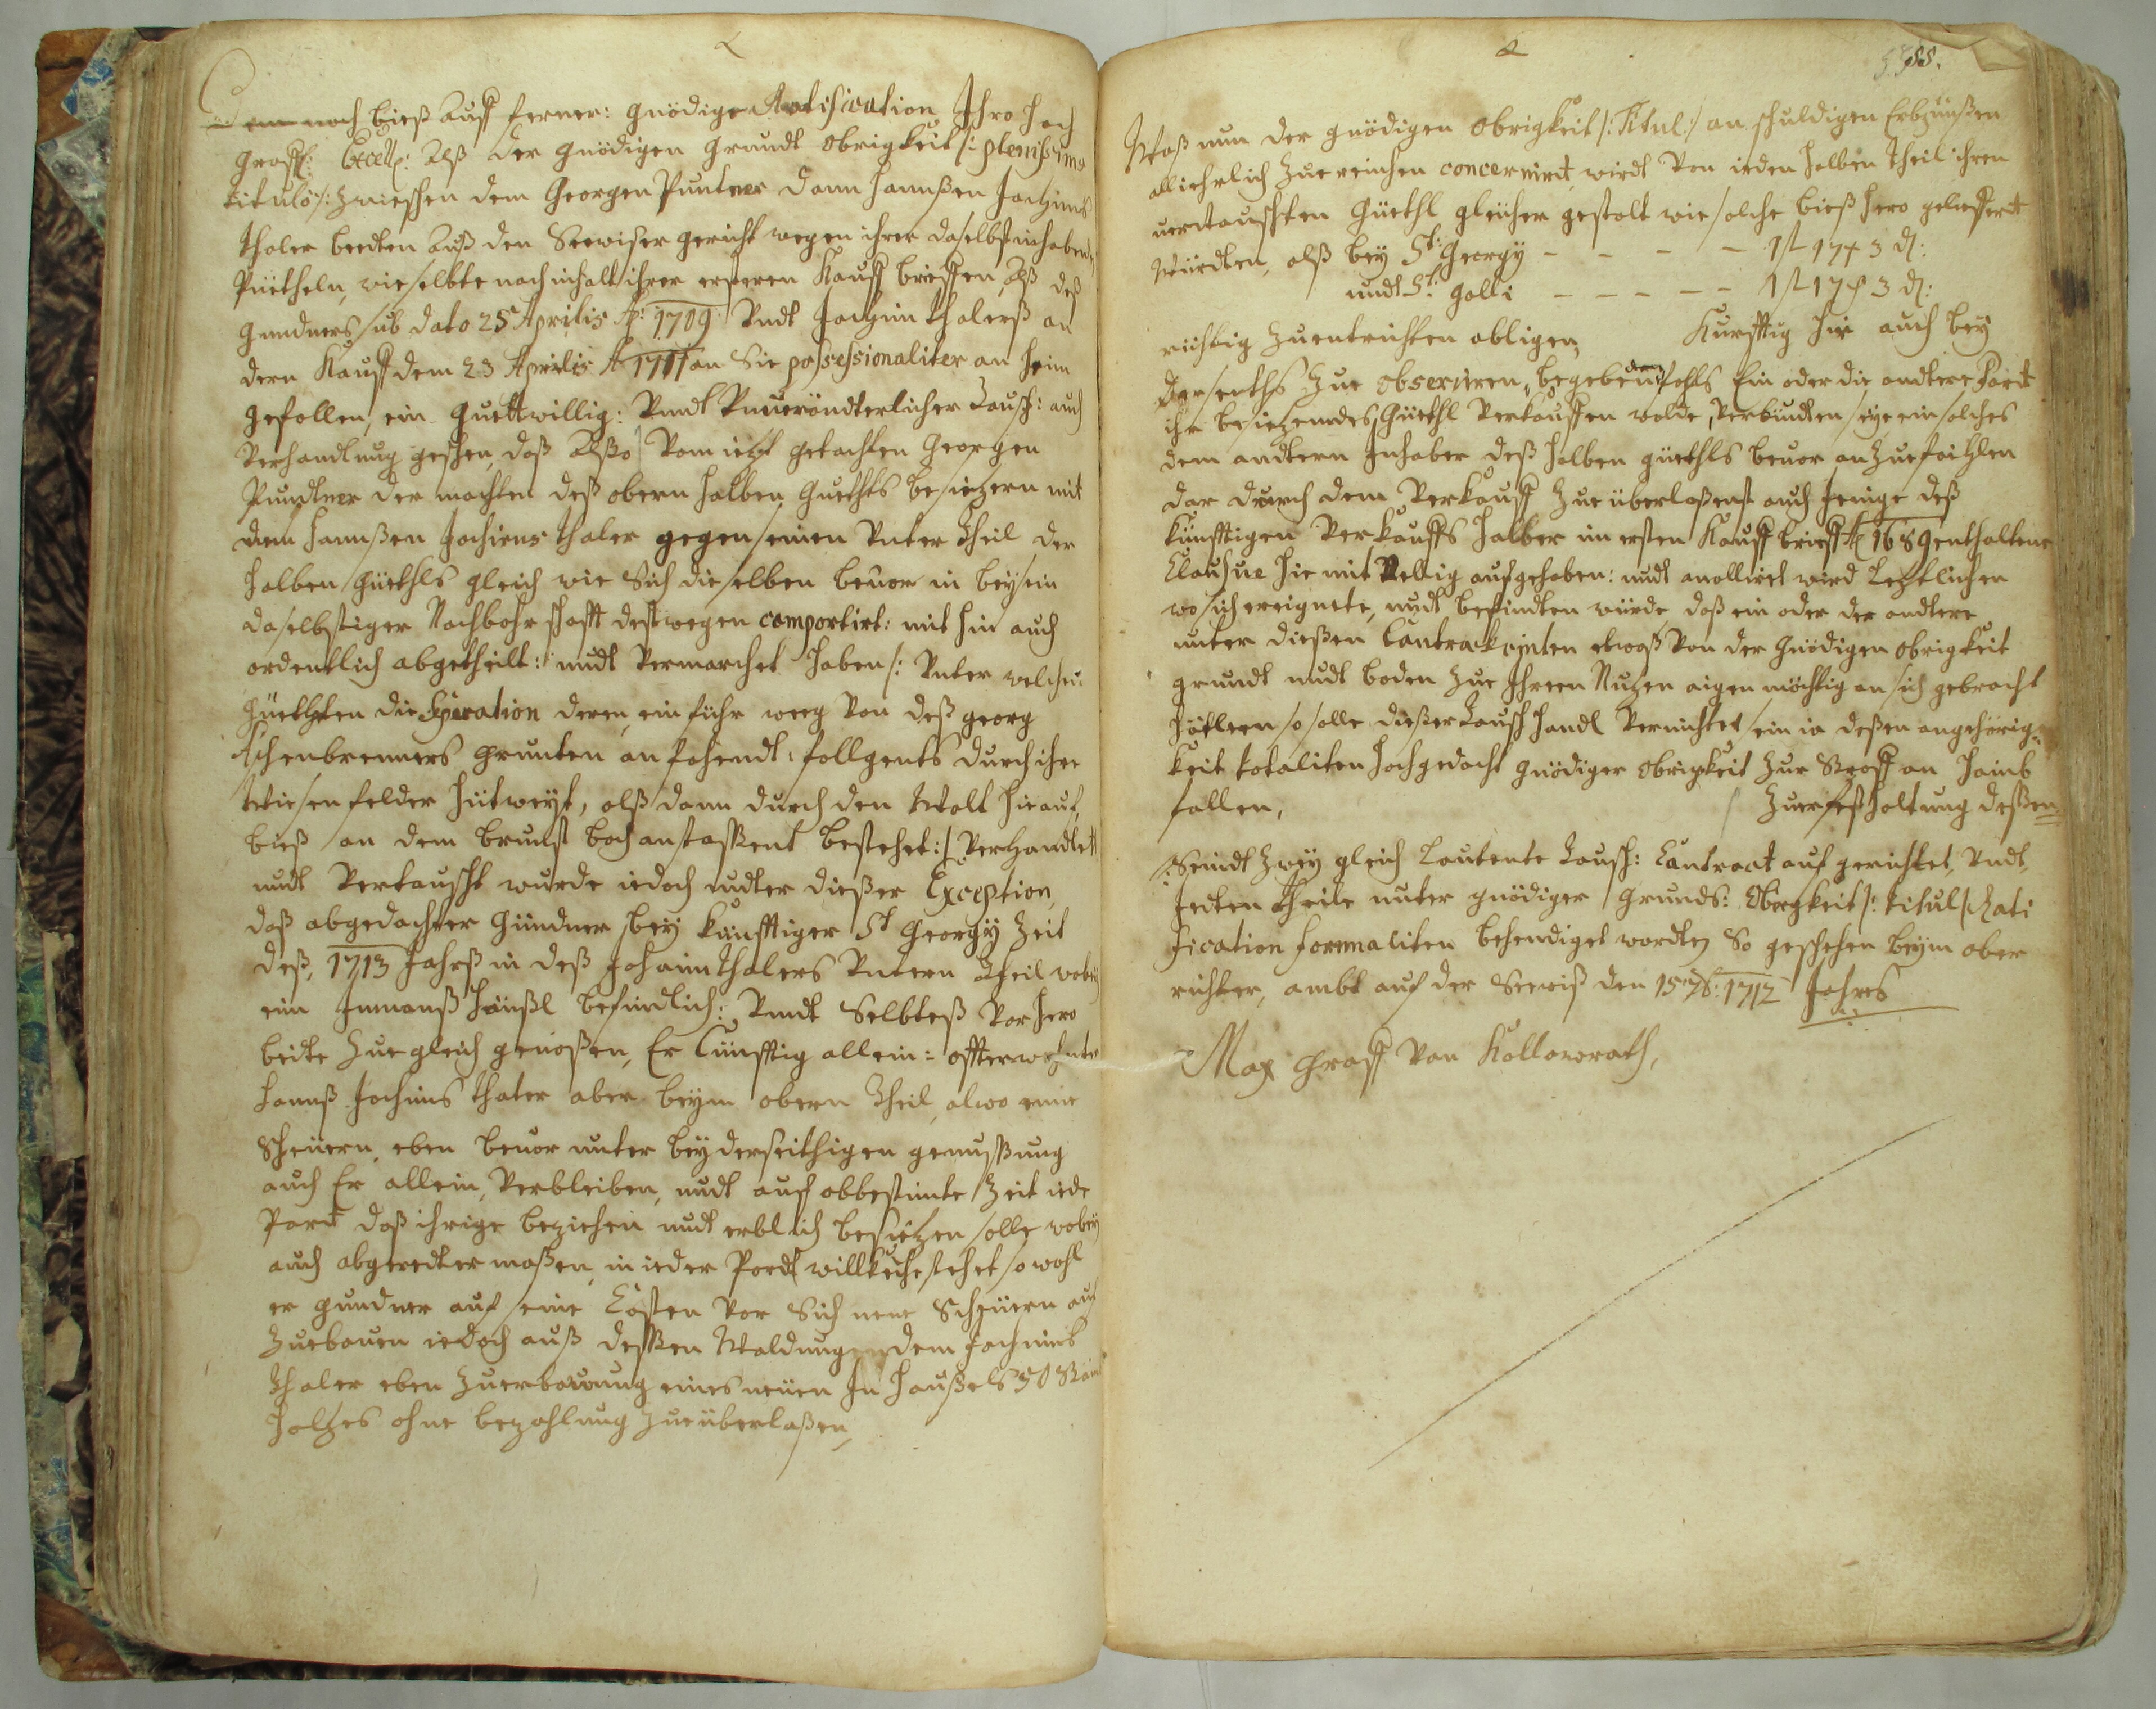 Dem nach bieß auff ferner: gnödige Ratification Ihro Hoch
Graff: Excell: Alß der gnödigen Grundt obrigkeit /: plenissimo
titulo :/ zwieschen dem Georgen Puntner dann Hannßen Jochims
thaler beedten auß den Seewißer gericht wegen ihrer daselbst inhabend
Güetheln, wie selbte nach inhalt ihrer ersteren Kauff brieffen, Alß deß
Gundners sub dato 25 Aprilis Ao: 1709 Undt Jochimthalerß an
dern Kauff dem 23 Aprilis Ao 1711 an Sie possessionaliter an heim
gefallen, ein guettwillig: Undt Unverändterlicher Tausch: auch
Verhandlung geschen, daß Alßo Vom iezt gedachten Georgen
Pundtner der machten deß obern halben Guethls besiezern mit
dem Hannßen Jochims thaler gegen seinen Unter theil der
halben Güethls gleich wie Sich dieselben bevor in beysein
daselbstiger Nachbohrschafft destwegen comportirt: mit hin auch
ordentlich abgetheilt: undt Vermarchet haben /: Unter welchen
Güethlen die Separation deren, ein führ weeg von deß Georg
Aschenbrenners grunten an fohendt, follgents durch ihre
Wiesen felder hütweyt, alß dann durch den Walt hinauf,
bieß an dem brunst boch anstossent bestehet :/ Verhandlet
undt Vertauscht wurde iedoch undter dießer Exception,
daß abgedachter Gündner bey künfftiger St Georgy Zeit
deß, 1713 Jahrß in deß Johaimthalers Untern theil wobey
ein Inmanß häußl befindlich: Undt Selbteß Vorhero
beide zue gleich genoßen, Er künfftig allein: offterwehnter
Hannß Jochims thaler aber beym obern theil, alwo eine
Scheüern, eben bevor unter beyderseithigen genussung
auch Er allein, Verbleiben, undt auf obbestimte Zeit iede
Part daß ihrige beziehen undt erblich besiezen solle wobey
auch abgeredter maßen, in ieder Pardt willkuhr stehet, so wohl
er Gundner auf seine Cösten vor Sich neue Scheüern auf
zuebauen iedoch auß dessen Waldungen dem Jochims
thaler eben zuerbauung eines neüen In haußels 50 Stam
holzes ohne bezahlung zueüberlaßen,
Waß nun der gnödigen obrigkeit /: Titul :/ an schuldigen Erbzünßen
alliehrlich zuereichen concernirt, wirdt von ieden halben theil ihren
vertauschten Güethl gleicher gestalt wie solche bieß hero gelieffert
Würdten, alß bey St: Georgy - - - - 1 fl 17 x 3 d:
undt St: Galli - - - - - 1 fl 17 x 3 d:
richtig zuentrichten obligen, Künfftig hin auch bey
derseiths zue observiren, begebendenfohls Ein oder die andtere Part
ihr besiezendes Güethl Verkauffen wolde, Verbundten seye ein solches
dem andtern Inhaber deß halben güethls bevor anzuefailzlen
dar durch dem Verkauff zueüberlaßen auch Jenige deß
künfftigen Verkauffs halber im ersten Kauff brieff Ao 1689 enthaltene
Clausul hiemit Vellig aufgehoben: undt anollirt wird Leztlichen
wo sich ereignete, undt befindten würde, daß ein oder der andtere
unter dießen Contrahenten etwaß Von der Gnödigen obrigkeit
grundt undt boden zue Ihren Nuzen aigen möchtig an sich gebracht
hätten so solle dießer Tausch handl Vernichtet sein in deßen angehörig-
keit totaliter Hochgedacht gnödiger obrigkeit zur Stroff an haimb
fallen, Zuer festhaltung dessen
Seindt zwey gleich lautente Tausch: Contract auf gerichtet, Undt
Jedten theile unter gnödiger Grundts: Obrigkeit /: titul :/ Rati
fication formaliter behendiget wordten So geschehen beym ober
richter, ambt auf der Seewiß den 15 1712 Jahrs
Max Graff von Kollowrath,